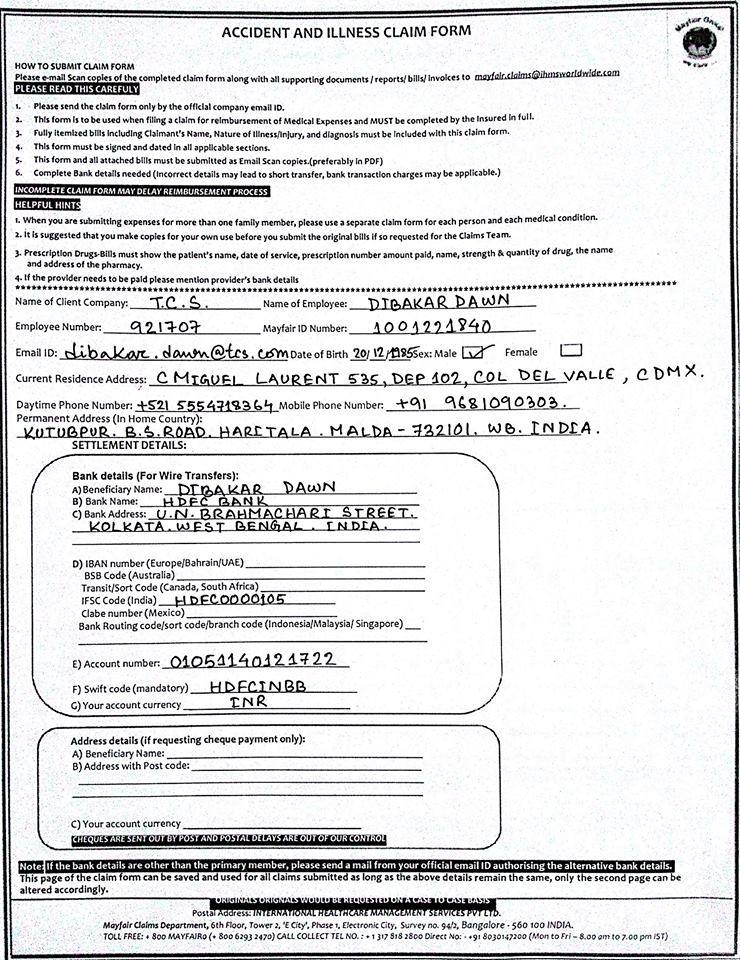 ACCIDENT AND ILLNESS CLAIM FORM
Mayfair Group
HOW TO SUBMIT CLAIM FORM
Please e-mail Scan copies of the completed claim form along with all supporting documents / reports/ bills/ invoices to mayfair.claims@ihmsworldwide.com
PLEASE READ THIS CAREFULY
1. Please send the claim form only by the official company email ID.
2. This form is to be used when filing a claim for reimbursement of Medical Expenses and MUST be completed by the Insured in full.
3. Fully itemized bills including Claimant's Name, Nature of Illness/Injury, and diagnosis must be included with this claim form.
4. This form must be signed and dated in all applicable sections.
5. This form and all attached bills must be submitted as Email Scan copies.(preferably in PDF)
6. Complete Bank details needed (Incorrect details may lead to short transfer, bank transaction charges may be applicable.)
INCOMPLETE CLAIM FORM MAY DELAY REIMBURSEMENT PROCESS
HELPFUL HINTS
1. When you are submitting expenses for more than one family member, please use a separate claim form for each person and each medical condition.
2. It is suggested that you make copies for your own use before you submit the original bills if so requested for the Claims Team.
3. Prescription Drugs-Bills must show the patient's name, date of service, prescription number amount paid, name, strength & quantity of drug, the name
and address of the pharmacy.
4. If the provider needs to be paid please mention provider's bank details
Name of Client Company: T.C.S. Name of Employee: DIBAKAR DAWN
Employee Number: 921707 Mayfair ID Number: 1001221840
Email ID: dibakar.dawn@tcs.com Date of Birth 20/12/1985 Sex: Male ✓ Female
Current Residence Address: C MIGUEL LAURENT 535, DEP 102, COL DEL VALLE, CDMX.
Daytime Phone Number: +521 5554718364 Mobile Phone Number: +91 9681090303.
Permanent Address (In Home Country):
KUTUBPUR. B.S.ROAD. HARITALA. MALDA - 732101. WB. INDIA.
SETTLEMENT DETAILS:
Bank details (For Wire Transfers):
A) Beneficiary Name: DIBAKAR DAWN
B) Bank Name: HDFC BANK
C) Bank Address: U.N. BRAHMACHARI STREET.
KOLKATA. WEST BENGAL. INDIA.
D) IBAN number (Europe/Bahrain/UAE)
BSB Code (Australia)
Transit/Sort Code (Canada, South Africa)
IFSC Code (India) HDFC0000105
Clabe number (Mexico)
Bank Routing code/sort code/branch code (Indonesia/Malaysia/ Singapore)
E) Account number: 01051140121722
F) Swift code (mandatory) HDFCINBB
G) Your account currency INR
Address details (if requesting cheque payment only):
A) Beneficiary Name:
B) Address with Post code:
C) Your account currency
CHEQUES ARE SENT OUT BY POST AND POSTAL DELAYS ARE OUT OF OUR CONTROL
Note: If the bank details are other than the primary member, please send a mail from your official email ID authorising the alternative bank details.
This page of the claim form can be saved and used for all claims submitted as long as the above details remain the same, only the second page can be
altered accordingly.
ORIGINALS ORIGNALS WOULD BE REQUESTED ON A CASE TO CASE BASIS
Postal Address: INTERNATIONAL HEALTHCARE MANAGEMENT SERVICES PVT LTD.
Mayfair Claims Department, 6th Floor, Tower 2, 'E City', Phase 1, Electronic City, Survey no. 94/2, Bangalore - 560 100 INDIA.
TOLL FREE: + 800 MAYFAIR0 (+ 800 6293 2470) CALL COLLECT TEL NO. : + 1 317 818 2800 Direct No: - +91 8030147200 (Mon to Fri - 8.00 am to 7.00 pm IST)